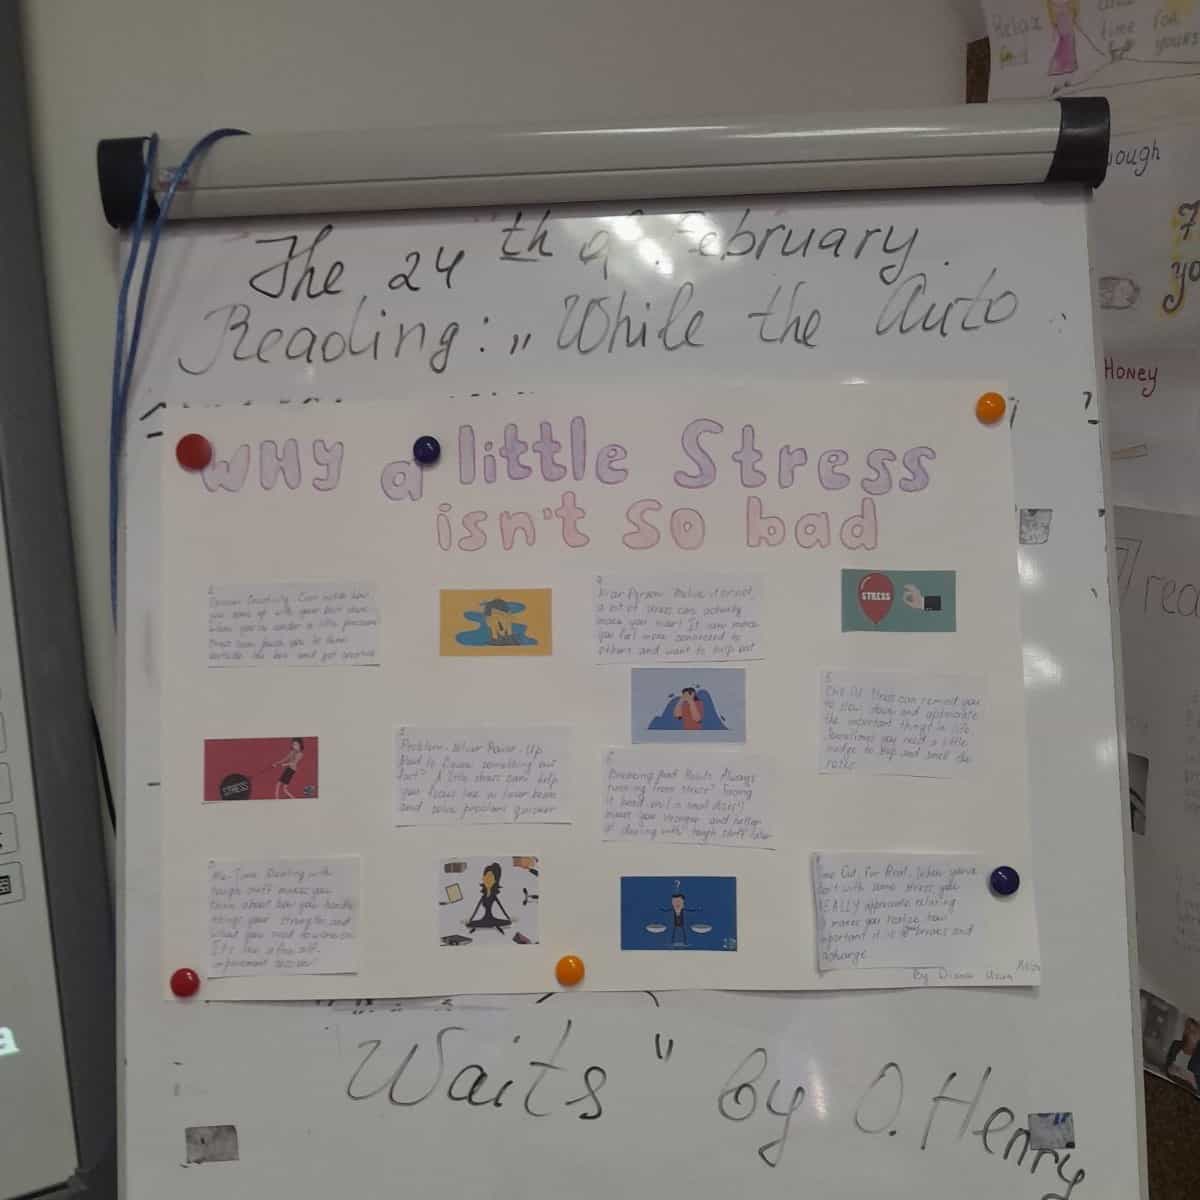 Relax
time for
yours
The 24th of February.
Reading: „While the Auto
ough
Honey
Why a little Stress
isn't so bad
you come up with your best ideas
when you're under a little pressure
Stress can push you to think
outside the box and get creative
a bit of stress can actually
make you nicer! It can make
you feel more connected to
others and want to help out
STRESS
Chill Out Stress can remind you
to slow down and appreciate
the important things in life.
Sometimes you need a little
nudge to stop and smell the
roses
Problem-Solver Power-Up
Need to figure something out
fast? A little stress can help
you focus like a laser beam
and solve problems quicker
Breaking Bad Habits Always
running from stress? Facing
it head on (in small doses)
makes you stronger and better
at dealing with tough stuff later
STRESS
Me-Time Dealing with
tough stuff makes you
think about how you handle
things your strengths and
what you need to work on
It's like a free self-
improvement session!
Time Out, For Real. When you've
dealt with some stress you
REALLY appreciate relaxing
It makes you realize how
important it is to breaks and
recharge
By Diana
Waits" by O. Henry